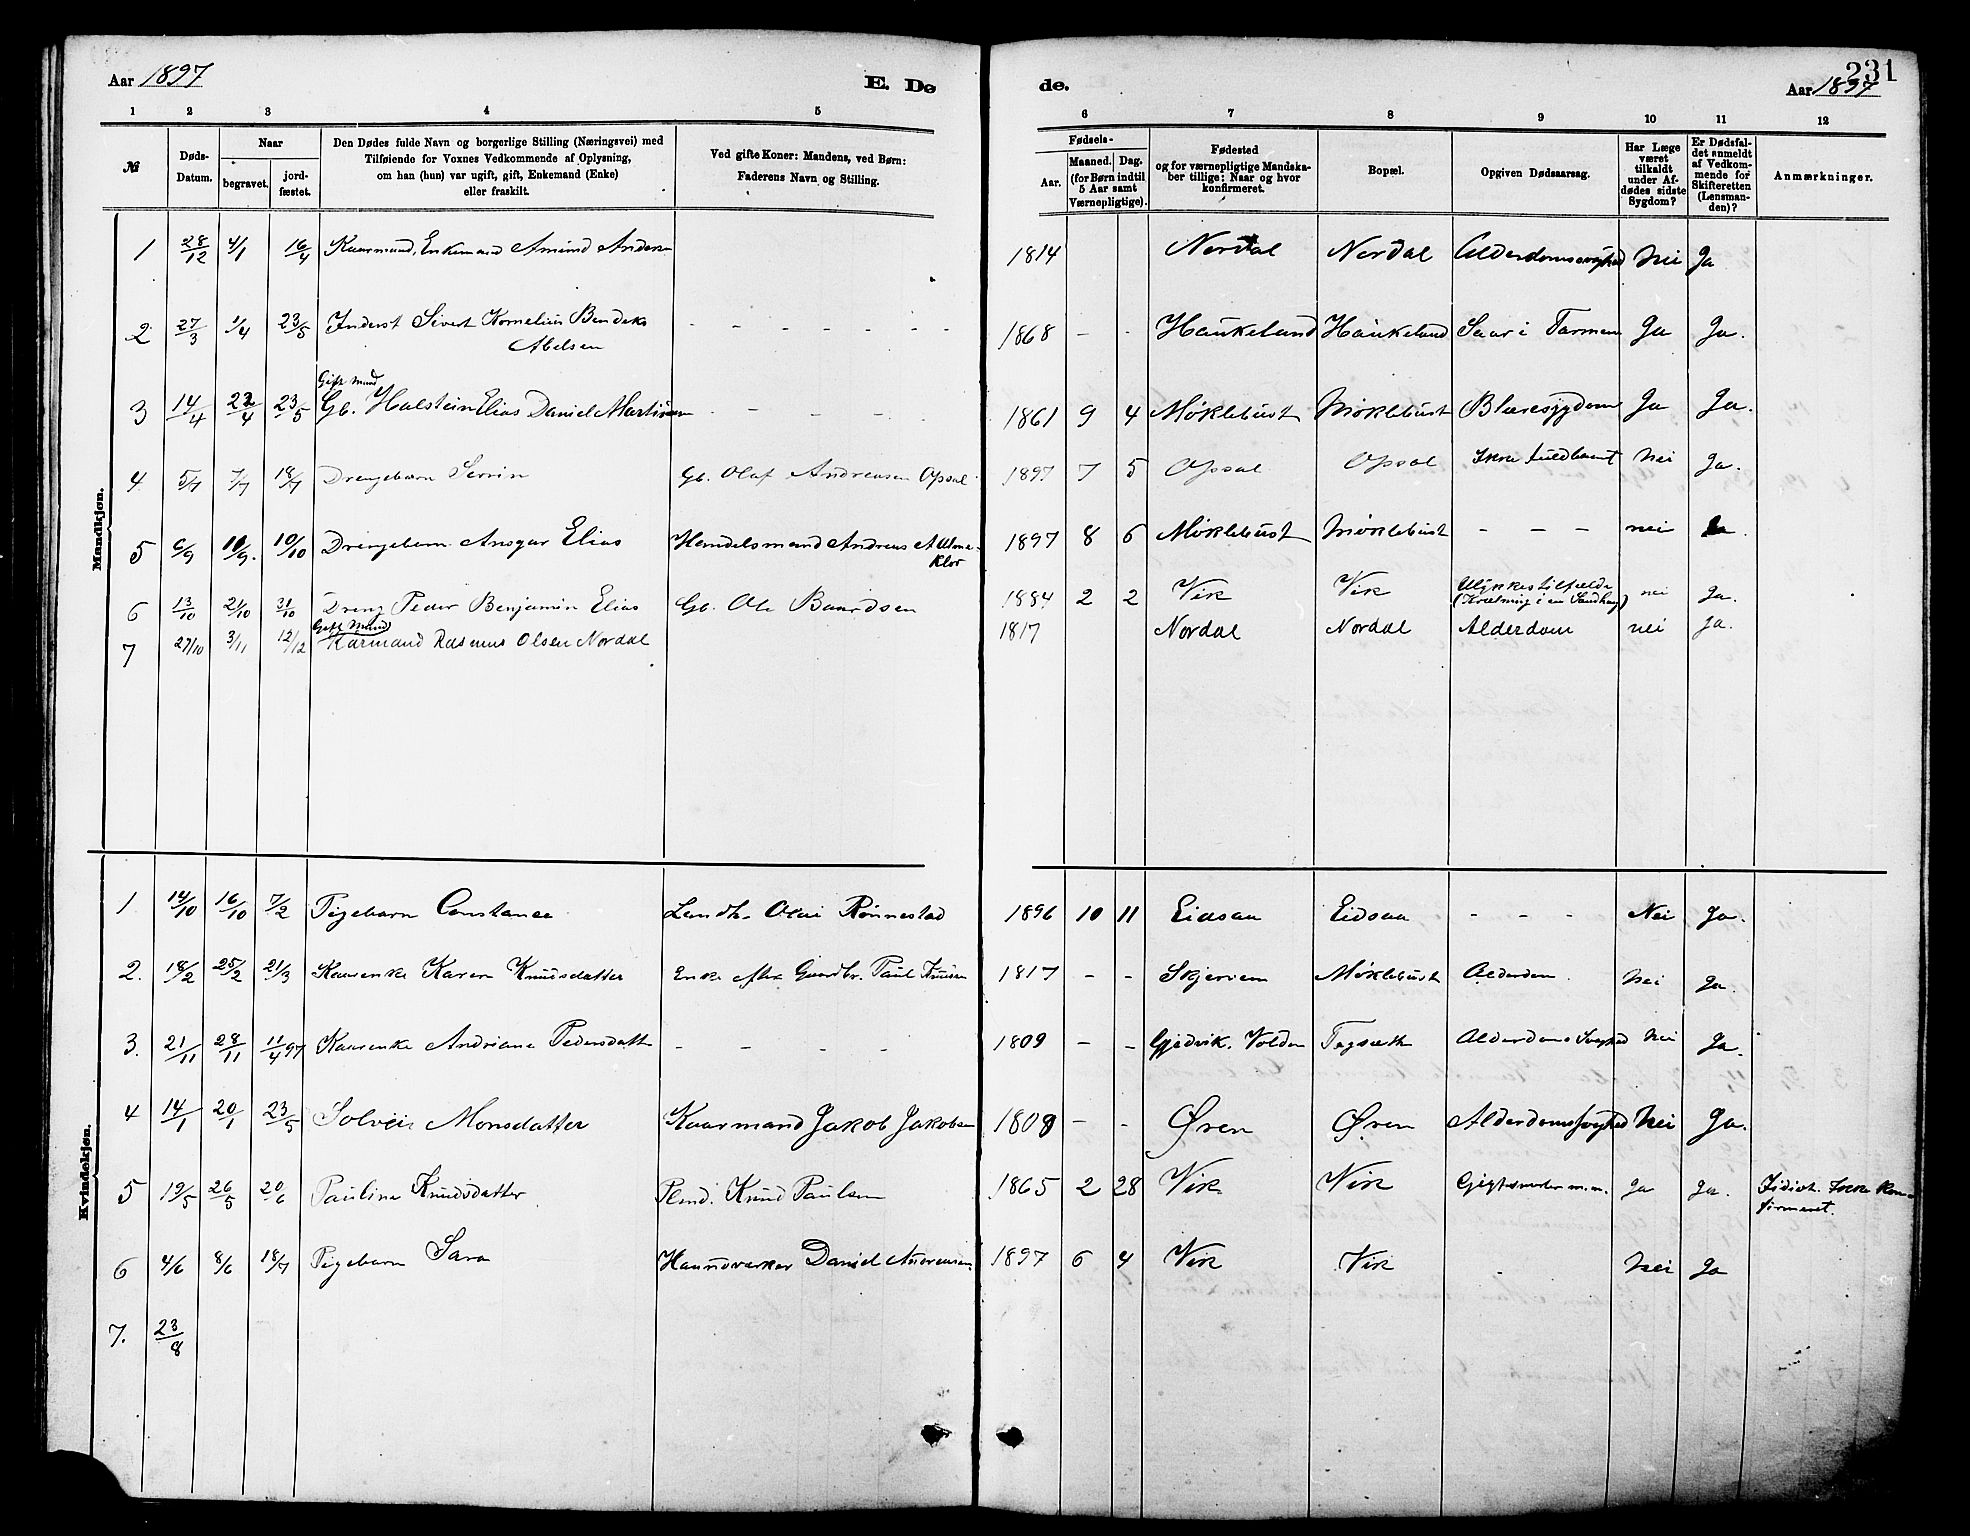 Aar 1897
E. Dø
de.
Aar 1897
231
1 2 3 4 5
6 7 8 9 10 11 12
№
Døds-Datum.
Naar
begravet.
jordfæstet.
Den Dødes fulde Navn og borgerlige Stilling (Næringsvei) med
Tilføiende for Voxnes Vedkommende af Oplysning,
om han (hun) var ugift, gift, Enkemand (Enke)
eller fraskilt.
Ved gifte Koner: Mandens, ved Børn:
Faderens Navn og Stilling.
Fødsels-
Aar.
Maaned. Dag.
(for Børn indtil
5 Aar samt
Værnepligtige).
Fødested
og for værnepligtige Mandska-
ber tillige: Naar og hvor
konfirmeret.
Bopæl.
Opgiven Dødsaarsag.
Har Læge
været
tilkaldt
under Af-
dødes sidste
Sygdom?
Er Dødsfal-
det anmeldt
af Vedkom-
mende for
Skifteretten
(Lensman-
den)?
Anmærkninger.
Mandkjøn.
1 28/12 4/1 16/4 Kaarmand, Enkemand Amund Andersen 1814 Nordal Nordal Alderdomssvaghed Nei Ja
2 27/3 1/4 23/5 Inderst Sivert Kornelius Bendeks - - - - - - 1868 - - Haukeland Haukeland Saar i Tarmen Ja Ja.
Abelsen
Gift Mand
3 14/4 22/4 23/5 Gb. Halstein Elias Daniel Martinsen - - - - 1861 9 4 Møklebust Møklebust Blæresygdom Ja Ja.
4 5/7 7/7 18/7 Drengebarn Gb. Olaf Andreasen Opsal 1897 7 5 Opsal Opsal Ikke fuldbaaret Nei Ja.
5 6/9 10/9. 10/10 Drengebarn Ansgar Elias Handelsmand Andreas 1897 8 6 Møklebust Møklebust - - - nei
6 13/10 21/10 31/10 Dreng Peder Benjamin Elias Gb. Ole Baardsen 1884 2 2 Vik Vik Ulykkestilfælde nei Ja.
(Kvælning i en Sandhaug)
Gift Mand
7 27/10 3/11 12/12 Karmand Rasmus Olsen Nordal 1817 Nordal Nordal Alderdom nei Ja.
Kvindekjøn.
1 14/10 16/10 7/2 Pigebarn Constance Landh. Olai Rønnestad 1896 10 11 Eidsaa Eidsaa - - - Nei Ja.
2. 18/2 25/2 21/3 Kaarenke Karen Knudsdatter Enke efter Gaardbr. Paul Knudsen 1817 - - Skjerven Møklebust Alderdom Nei Ja.
3. 21/11 28/11 11/4 97 Kaarenke Andriane Pedersdatt - - - - 1809 - - Gjedvik. Volden Tegsæth Alderdoms Svaghed Nei Ja.
4 14/1 20/1 23/5 Solveig Monsdatter Kaarmand Jakob Jakobsen 1808 - - Øren Øren Alderdomssvaghed Nei Ja.
5 19/5 26/5 20/6 Pauline Knudsdatter Knud Paulsen 1865 2 28 Vik Vik m.m. Ja Ja. Idiot. Ikke kon-
firmeret.
6 4/6 8/6 18/7 Pigebarn Sara Haandværker Daniel Andreasen 1897 6 4 Vik Vik - Nei Ja
7. 23/8